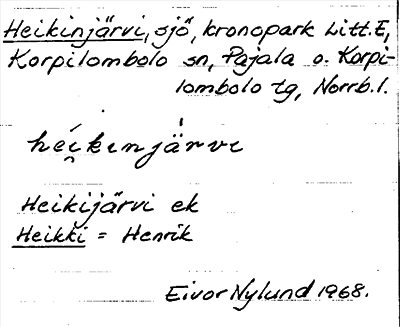 Heikinjärvi, sjö, kronopark Litt. E,
Korpilombolo sn, Pajala o. Korpi-
lombolo tg, Norrb. l.
heikinjärvi
Heikijärvi ek
Heikki = Henrik
Eivor Nylund 1968.